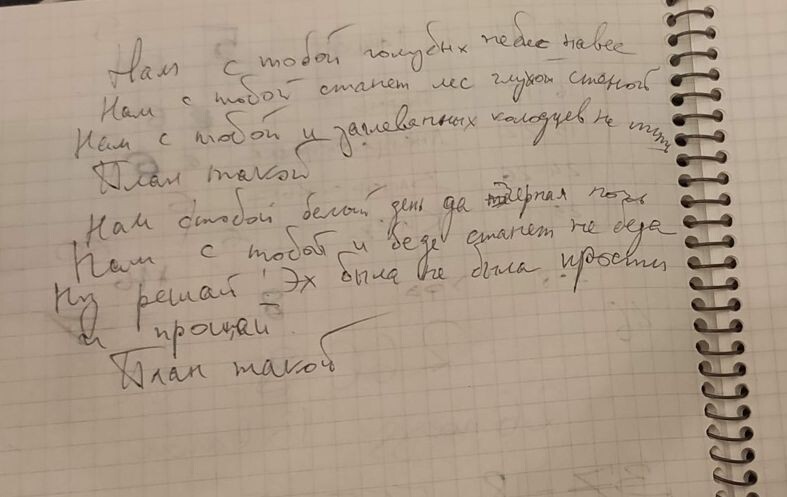 Нам с тобой голубых небес навес
Нам с тобой станет лес глухой стеной
Нам с тобой и заплеванных колодцев не пить
План такой
Нам с тобой белый день да черная ночь
Нам с тобой и беде станет не беда
Ну решай Эх была не была прости
и прощай
План такой